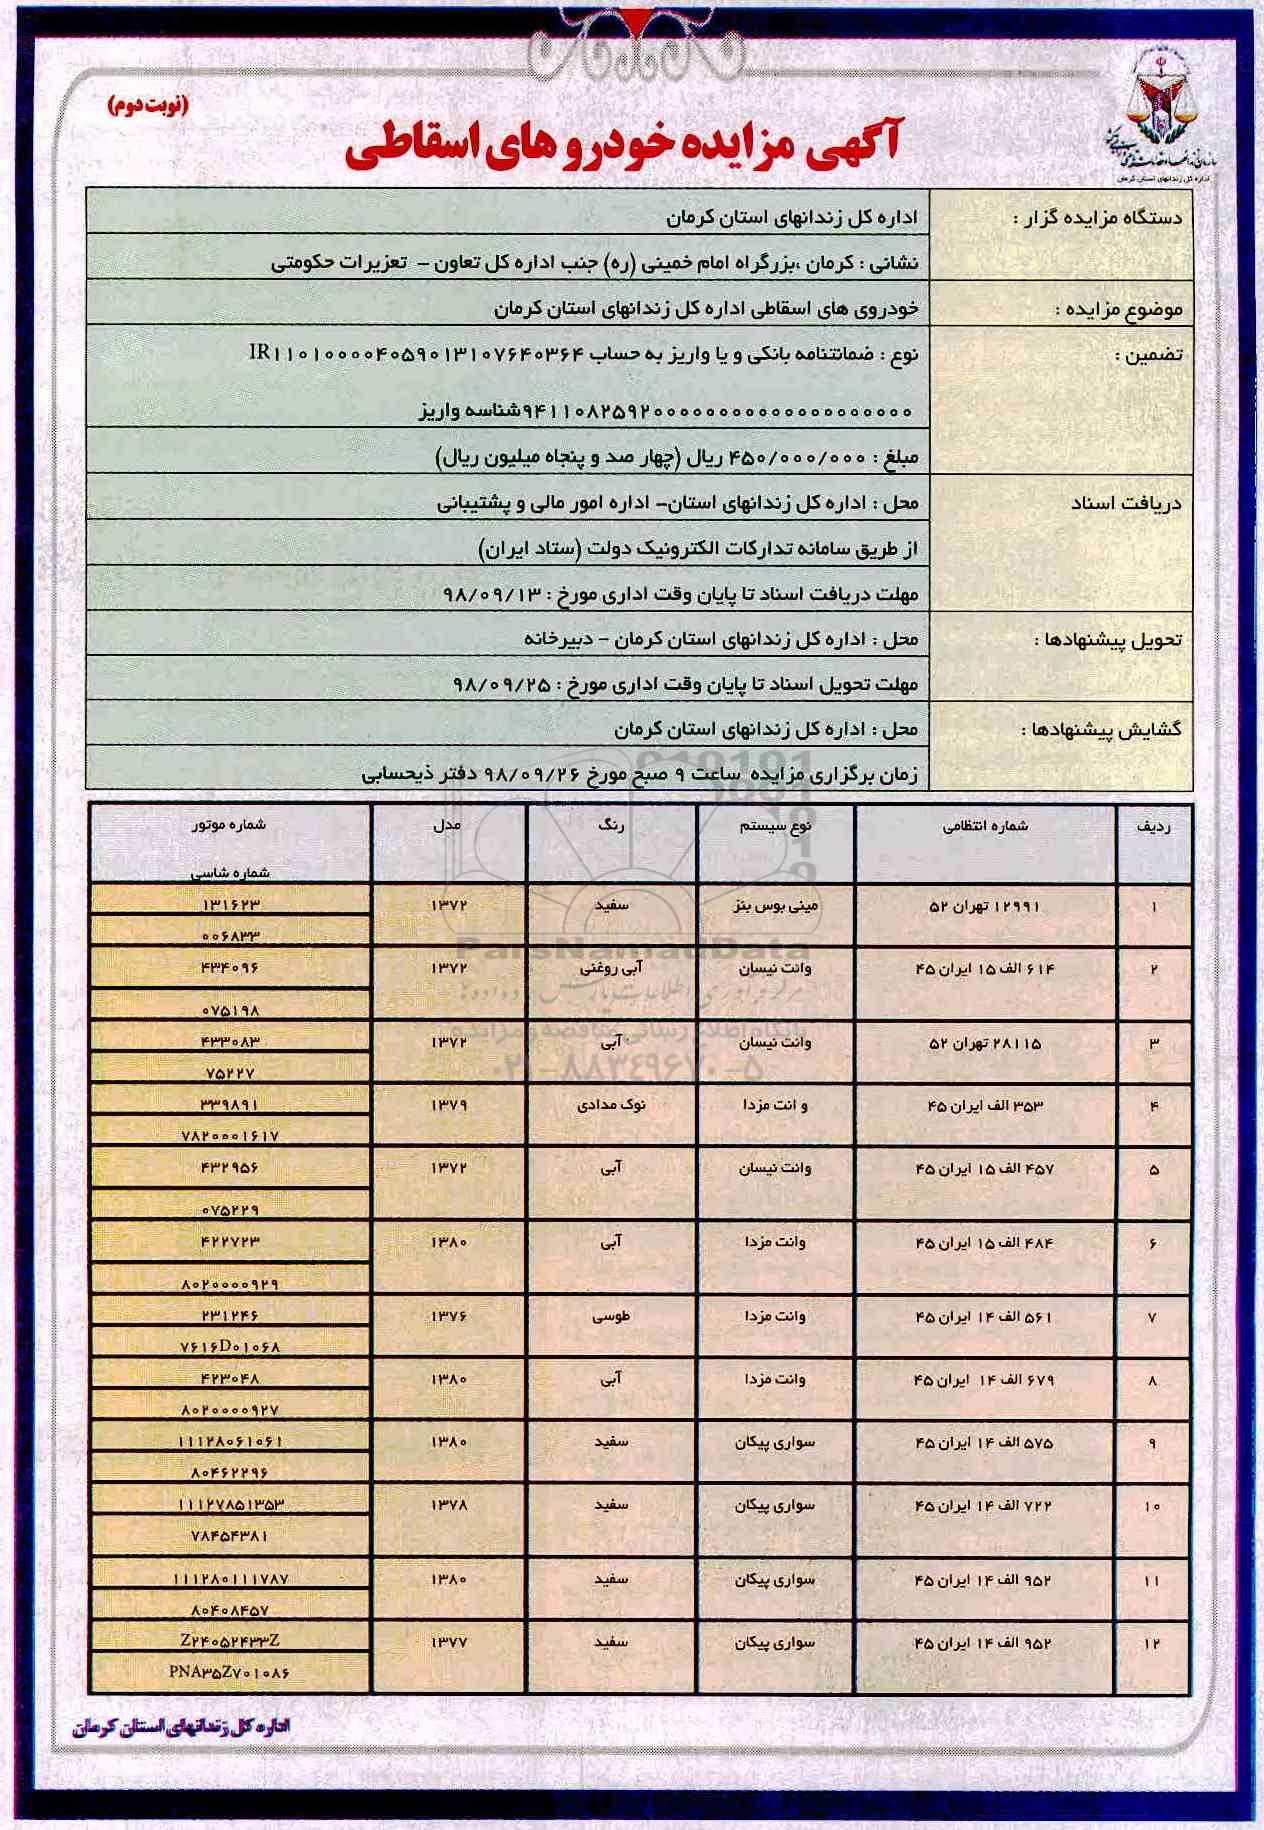 (نوبت دوم)
آگهی مزایده خودرو های اسقاطی
اداره کل زندانهای استان کرمان
دستگاه مزایده گزار : اداره کل زندانهای استان کرمان
نشانی : کرمان ،بزرگراه امام خمینی (ره) جنب اداره کل تعاون – تعزیرات حکومتی
موضوع مزایده : خودروی های اسقاطی اداره کل زندانهای استان کرمان
تضمین : نوع : ضمانتنامه بانکی و یا واریز به حساب IR۱۱۰۱۰۰۰۰۴۰۵۹۰۱۳۱۰۷۶۴۰۳۶۴
شناسه واریز
مبلغ : ۴۵۰/۰۰۰/۰۰۰ ریال (چهار صد و پنجاه میلیون ریال)
دریافت اسناد محل : اداره کل زندانهای استان– اداره امور مالی و پشتیبانی
از طریق سامانه تدارکات الکترونیک دولت (ستاد ایران)
مهلت دریافت اسناد تا پایان وقت اداری مورخ : ۹۸/۰۹/۱۳
تحویل پیشنهادها : محل : اداره کل زندانهای استان کرمان – دبیرخانه
مهلت تحویل اسناد تا پایان وقت اداری مورخ : ۹۸/۰۹/۲۵
گشایش پیشنهادها : محل : اداره کل زندانهای استان کرمان
زمان برگزاری مزایده ساعت ۹ صبح مورخ ۹۸/۰۹/۲۶ دفتر ذیحسابی
ردیف شماره انتظامی نوع سیستم رنگ مدل شماره موتور
شماره شاسی
۱ ۱۲۹۹۱ تهران ۵۲ مینی بوس بنز سفید ۱۳۷۲ ۱۳۱۶۲۳
۰۰۶۸۳۳
۲ ۶۱۴ الف ۱۵ ایران ۴۵ وانت نیسان آبی روغنی ۱۳۷۲ ۴۳۴۰۹۶
۰۷۵۱۹۸
۳ ۲۸۱۱۵ تهران ۵۲ وانت نیسان آبی ۱۳۷۲ ۴۳۳۰۸۳
۷۵۲۲۷
۴ ۳۵۳ الف ایران ۴۵ و انت مزدا نوک مدادی ۱۳۷۹ ۳۳۹۸۹۱
۷۸۲۰۰۰۱۶۱۷
۵ ۴۵۷ الف ۱۵ ایران ۴۵ وانت نیسان آبی ۱۳۷۲ ۴۳۲۹۵۶
۰۷۵۲۲۹
۶ ۴۸۴ الف ۱۵ ایران ۴۵ وانت مزدا آبی ۱۳۸۰ ۴۲۲۷۲۳
۸۰۲۰۰۰۰۹۲۹
۷ ۵۶۱ الف ۱۴ ایران ۴۵ وانت مزدا طوسی ۱۳۷۶ ۲۳۱۲۴۶
۷۶۱۶D۰۱۰۶۸
۸ ۶۷۹ الف ۱۴ ایران ۴۵ وانت مزدا آبی ۱۳۸۰ ۴۲۳۰۴۸
۸۰۲۰۰۰۰۹۲۷
۹ ۵۷۵ الف ۱۴ ایران ۴۵ سواری پیکان سفید ۱۳۸۰ ۱۱۱۲۸۰۶۱۰۶۱
۸۰۴۶۲۲۹۶
۱۰ ۷۲۲ الف ۱۴ ایران ۴۵ سواری پیکان سفید ۱۳۷۸ ۱۱۱۲۷۸۵۱۳۵۳
۷۸۴۵۴۳۸۱
۱۱ ۹۵۲ الف ۱۴ ایران ۴۵ سواری پیکان سفید ۱۳۸۰ ۱۱۱۲۸۰۱۱۱۷۸۷
۸۰۴۰۸۴۵۷
۱۲ ۹۵۲ الف ۱۴ ایران ۴۵ سواری پیکان سفید ۱۳۷۷ Z۲۴۰۵۲۴۳۳Z
PNA۳۵Z۷۰۱۰۸۶
ParsNamadData
پایگاه اطلاع رسانی مناقصه و مزایده
۰۲۱-۸۸۳۴۹۶۷۰-۵
اداره کل زندانهای استان کرمان